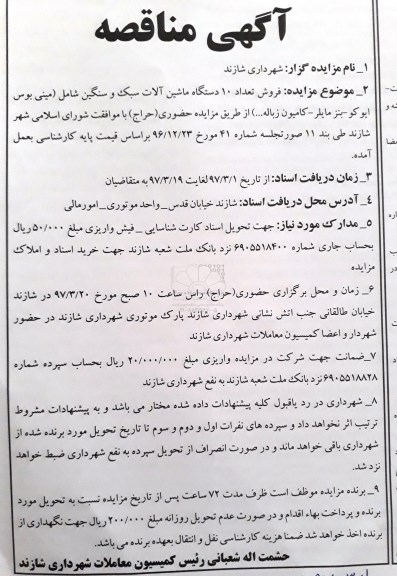 آگهی مناقصه
۱_ نام مزایده گزار: شهرداری شازند
۲_ موضوع مزایده: فروش تعداد ۱۰ دستگاه ماشین آلات سبک و سنگین شامل (مینی بوس
ایوکو-بنز مایلر-کامیون زباله...) از طریق مزایده حضوری(حراج) با موافقت شورای اسلامی شهر
شازند طی بند ۱۱ صورتجلسه شماره ۴۱ مورخ ۹۶/۱۲/۲۳ براساس قیمت پایه کارشناسی بعمل
آمده.
۳_ زمان دریافت اسناد: از تاریخ ۹۷/۳/۱ لغایت ۹۷/۳/۱۹ به متقاضیان
۴_ آدرس محل دریافت اسناد: شازند خیابان قدس_ واحد موتوری_ امورمالی
۵_ مدارک مورد نیاز: جهت تحویل اسناد کارت شناسایی _فیش واریزی مبلغ ۵۰/۰۰۰ ریال
بحساب جاری شماره ۶۹۰۵۵۱۸۴۰۰ نزد بانک ملت شعبه شازند جهت خرید اسناد و املاک
مزایده
۶_ زمان و محل برگزاری حضوری(حراج) راس ساعت ۱۰ صبح مورخ ۹۷/۳/۲۰ در شازند
خیابان طالقانی جنب اتش نشانی شهرداری شازند پارک موتوری شهرداری شازند در حضور
شهردار و اعضا کمیسیون معاملات شهرداری شازند
۷_ ضمانت جهت شرکت در مزایده واریزی مبلغ ۲۰/۰۰۰/۰۰۰ ریال بحساب سپرده شماره
۶۹۰۵۵۱۸۸۲۸ نزد بانک ملت شعبه شازند به نفع شهرداری شازند
۸_ شهرداری در رد یاقبول کلیه پیشنهادات داده شده مختار می باشد و به پیشنهادات مشروط
ترتیب اثر نخواهد داد و سپرده های نفرات اول و دوم و سوم تا تاریخ تحویل مورد برنده شده از
شهرداری باقی خواهد ماند و در صورت انصراف از تحویل سپرده به نفع شهرداری ضبط خواهد
نزد شد.
۹_ برنده مزایده موظف است ظرف مدت ۷۲ ساعت پس از تاریخ مزایده نسبت به تحویل مورد
برنده و پرداخت بهاء اقدام و در صورت عدم تحویل روزانه مبلغ ۲۰۰/۰۰۰ ریال جهت نگهداری از
برنده اخذ خواهد شد ضمنا هزینه کارشناسی نقل و انتقال بعهده برنده می باشد.
حشمت اله شعبانی رئیس کمیسیون معاملات شهرداری شازند